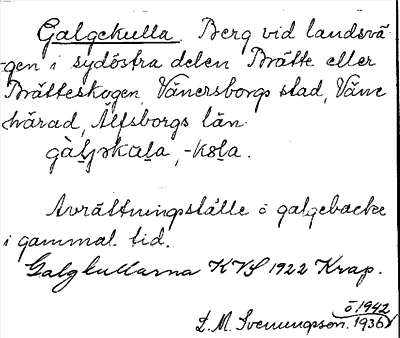 Galgekulla. Berg vid landsvä
gen i sydöstra delen Brätte eller
Brätteskogen, Vänersborgs stad, Väne
härad, Älfsborgs län.
gàljəkùla, -kola.
Avrättningställe o galgebacke
i gammal tid.
Galgkullarna KVS 1922 Krap.
ö 1942
L. M. Svenungsson. 1936